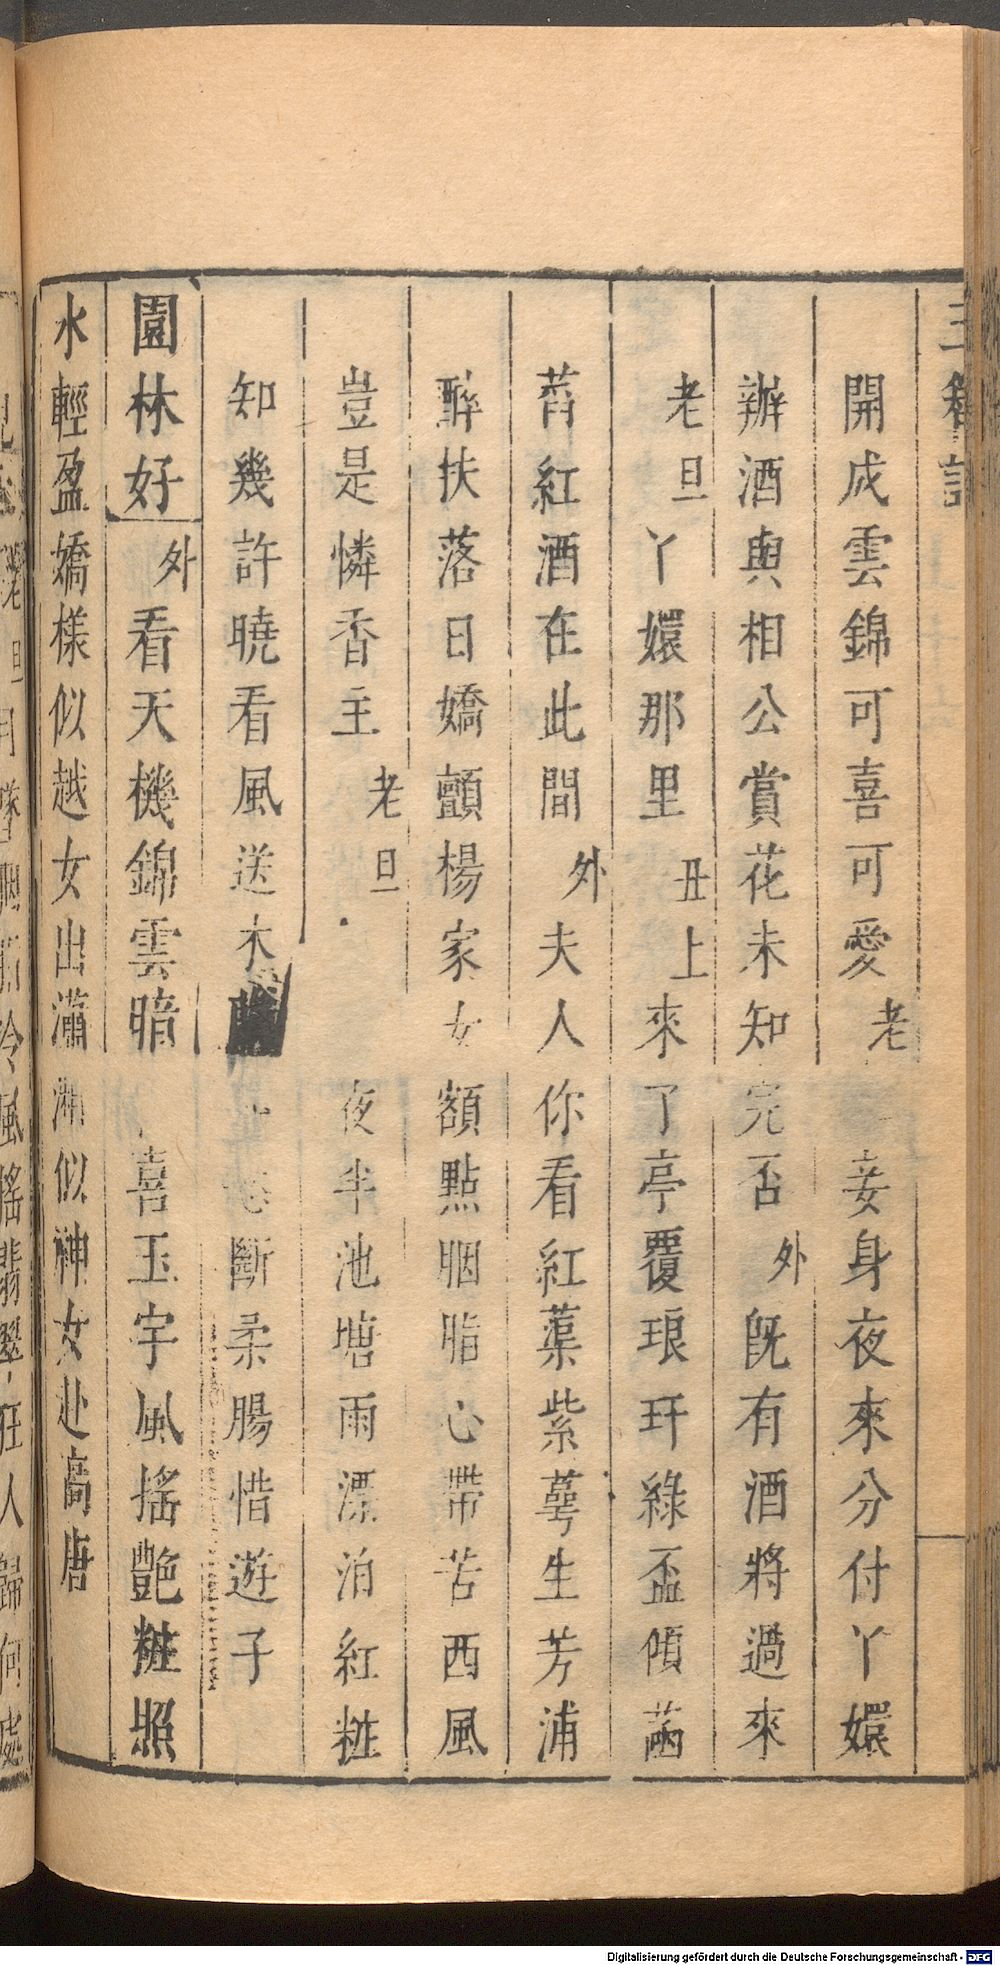 開成雲錦可喜可愛老妾身夜來分付丫嬛
辦酒與相公賞花未知完否外既有酒將過來
老旦丫嬛那里丑上來了亭覆琅玕綠盃傾菡
萏紅酒在此間外夫人你看紅蕖紫萼生芳浦
醉扶落日嬌顫楊家女額點胭脂心帶苦西風
豈是憐香主老旦夜半池塘雨漂泊紅粧
知幾許曉看風送木斷柔腸惜遊子
園林好外看天機錦雲暗喜玉宇風搖艷粧照
水輕盈嬌樣似越女出瀟湘似神女赴高唐
Digitalisierung gefördert durch die Deutsche Forschungsgemeinschaft - DFG